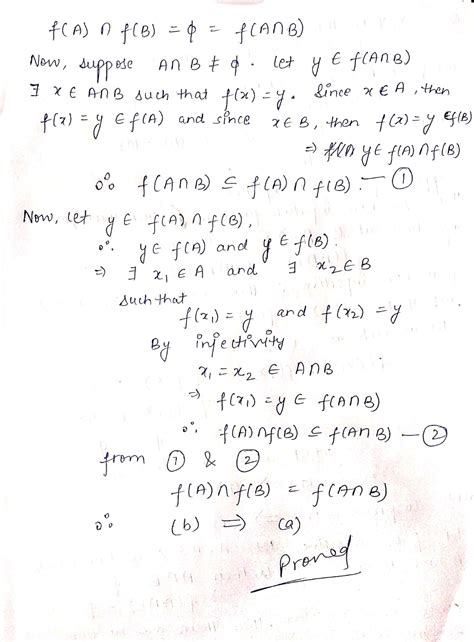 f(A) ∩ f(B) = ϕ = f(A∩B)
Now, suppose A∩B ≠ ϕ. Let y ∈ f(A∩B)
∃ x ∈ A∩B such that f(x) = y. Since x ∈ A, then
f(x) = y ∈ f(A) and since x ∈ B, then f(x) = y ∈ f(B)
⇒ y ∈ f(A) ∩ f(B)
∴ f(A∩B) ⊆ f(A) ∩ f(B). — ①
Now, let y ∈ f(A) ∩ f(B),
∴ y ∈ f(A) and y ∈ f(B).
⇒ ∃ x₁ ∈ A and ∃ x₂ ∈ B
such that
f(x₁) = y and f(x₂) = y
By injectivity
x₁ = x₂ ∈ A∩B
⇒ f(x₁) = y ∈ f(A∩B)
∴ f(A) ∩ f(B) ⊆ f(A∩B) — ②
from ① & ②
f(A) ∩ f(B) = f(A∩B)
∴ (b) ⇒ (a)
Proved